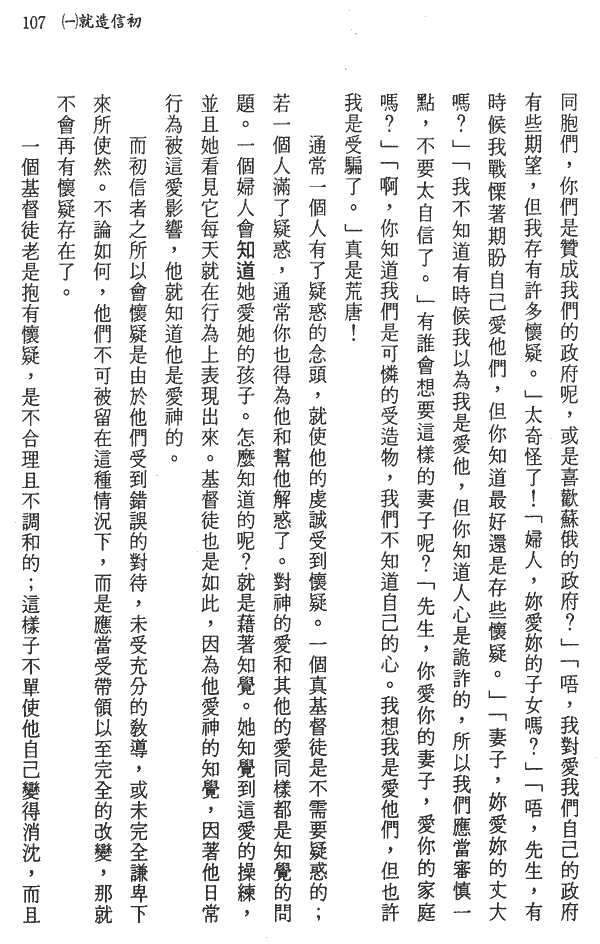 107 ㈠就造信初
同胞們，你們是贊成我們的政府呢，或是喜歡蘇俄的政府？」「唔，我對愛我們自己的政府
有些期望，但我存有許多懷疑。」太奇怪了！「婦人，妳愛妳的子女嗎？」「唔，先生，有
時候我戰慄著期盼自己愛他們，但你知道最好還是存些懷疑。」「妻子，妳愛妳的丈夫
嗎？」「我不知道有時候我以為我是愛他，但你知道人心是詭詐的，所以我們應當審慎一
點，不要太自信了。」有誰會想要這樣的妻子呢？「先生，你愛你的妻子，愛你的家庭
嗎？」「啊，你知道我們是可憐的受造物，我們不知道自己的心。我想我是愛他們，但也許
我是受騙了。」真是荒唐！
通常一個人有了疑惑的念頭，就使他的虔誠受到懷疑。一個真基督徒是不需要疑惑的；
若一個人滿了疑惑，通常你也得為他和幫他解惑了。對神的愛和其他的愛同樣都是知覺的問
題。一個婦人會知道她愛她的孩子。怎麼知道的呢？就是藉著知覺。她知覺到這愛的操練，
並且她看見它每天就在行為上表現出來。基督徒也是如此，因為他愛神的知覺，因著他日常
行為被這愛影響，他就知道他是愛神的。
而初信者之所以會懷疑是由於他們受到錯誤的對待，未受充分的教導，或未完全謙卑下
來所使然。不論如何，他們不可被留在這種情況下，而是應當受帶領以至完全的改變，那就
不會再有懷疑存在了。
一個基督徒老是抱有懷疑，是不合理且不調和的；這樣子不單使他自己變得消沈，而且